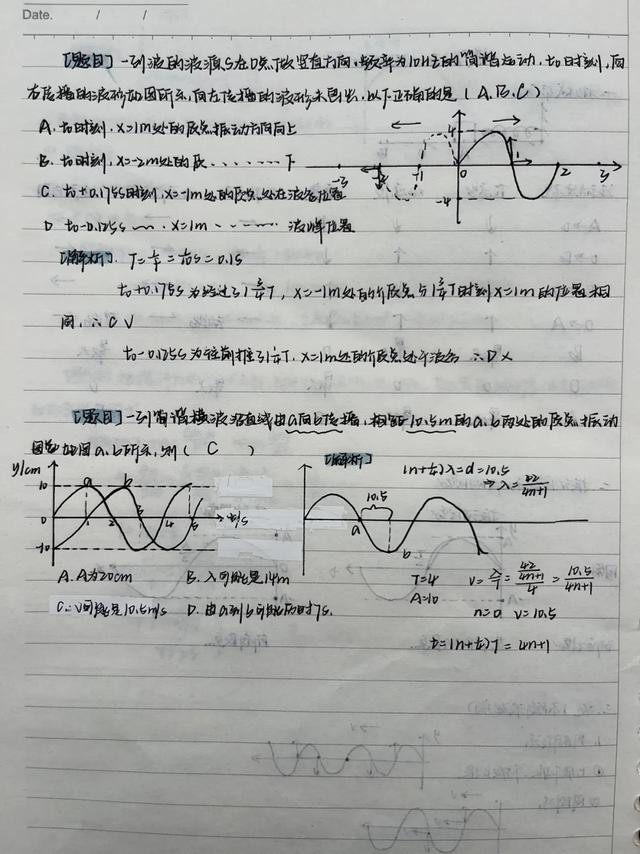 Date. / /
[题目] 一列波的波源S在O点做竖直方向、频率为10Hz的简谐运动,t₀时刻,向
右传播的波形如图所示,向左传播的波形未画出,以下正确的是(A.B.C)
A. t₀时刻,x=1m处的质点振动方向向上
B. t₀时刻,x=-2m处的质.......下
C. t₀+0.175s时刻,x=-1m处的质点处在波谷位置
D. t₀-0.125s ~~ x=1m ....... 波峰位置
4
-4
-3 -2 -1 0 1 2 3
[解析]. T=1/f=1/10s=0.1s
t₀+0.175s为经过了1 3/4T, x=-1m处的质点与1 3/4T时刻x=1m的位置相
同,∴C√
t₀-0.125s为往前推了1 1/4T. x=1m处的质点处于波谷 ∴D×
[题目] 一列简谐横波沿直线由a向b传播,相距10.5m的a、b两处的质点振动
图象如图a、b所示,则( C )
[解析]
y/cm
10
0
-10
a b
1 2 3 4 5 t/s
10.5
a
b
(n+1/4)λ=d=10.5
⇒λ=42/4n+1
A. A为20cm B. λ可能是14m
C. v可能是10.5m/s D. 由a到b可能历时7s.
T=4 v=λ/T=42/4n+1/4=10.5/4n+1
A=10
n=0 v=10.5
t=(n+1/4)T=4n+1